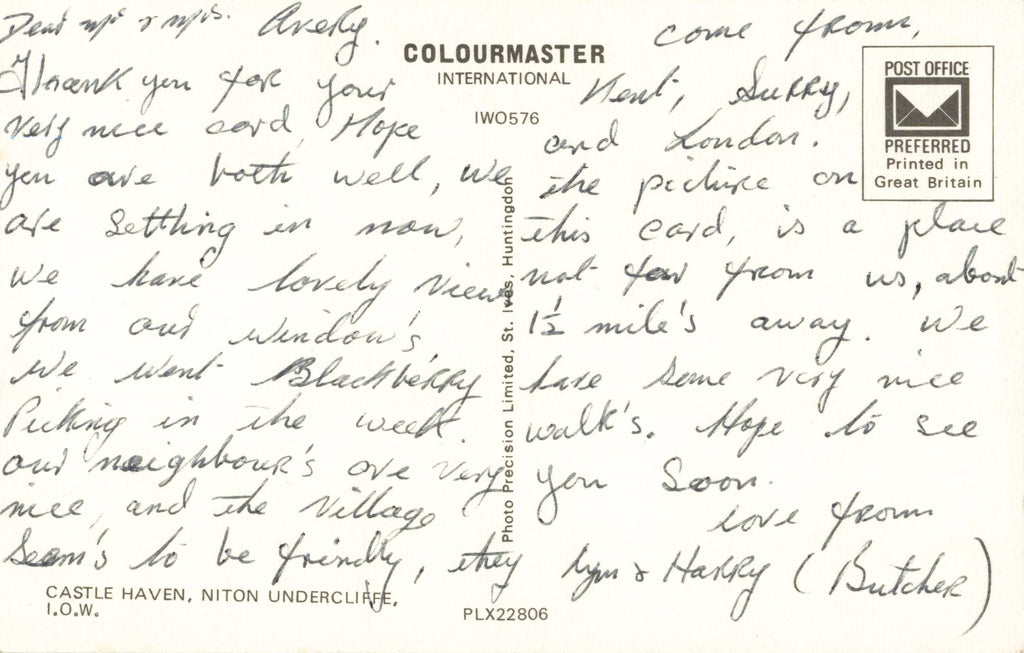 Dear mr & mrs. Avery.
Thank you for your
very nice card, Hope
you are both well, we
are settling in now,
we have lovely views
from our window's
we went Blackberry
Picking in the week.
our neighbour's are very
nice, and the village
seam's to be frindly, they
come from,
Kent, Surry,
and London.
the picture on
this card, is a place
not far from us, about
1½ mile's away. We
have some very nice
walk's. Hope to see
you soon.
love from
Lyn & Harry (Butcher)
COLOURMASTER
INTERNATIONAL
IWO576
POST OFFICE
PREFERRED
Printed in
Great Britain
Photo Precision Limited, St. Ives, Huntingdon
CASTLE HAVEN, NITON UNDERCLIFFE,
I.O.W.
PLX22806